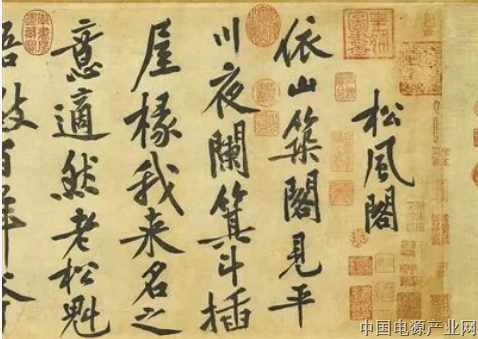 松風閣
依山築閣見平
川夜闌箕斗插
屋椽我来名之
意適然老松魁
中国电源产业网